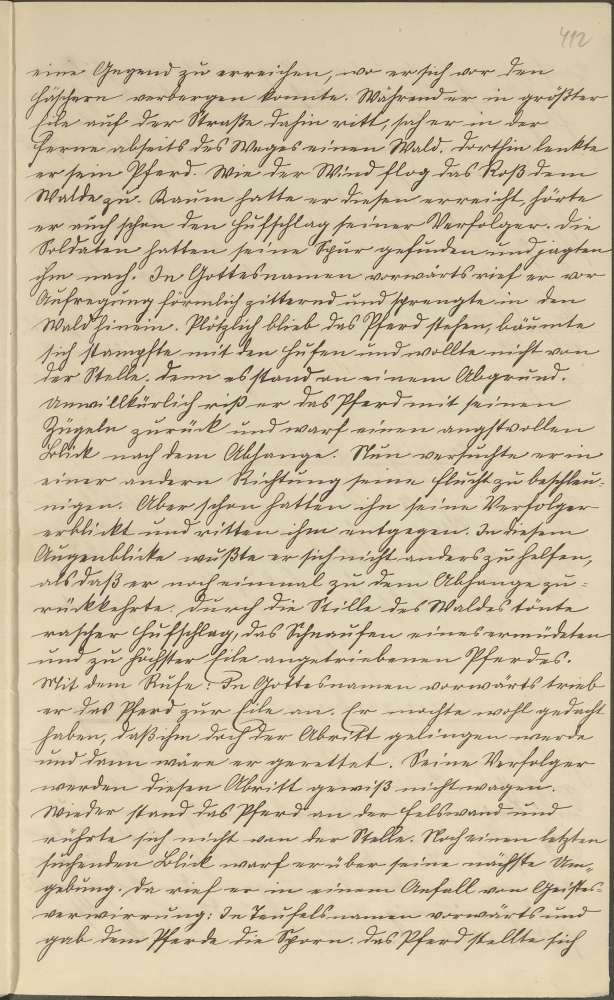 412
eine Gegend zu erreichen, wo er sich vor den
Häschern verbergen konnte. Während er in größter
Eile auf der Straße dahin ritt, sah er in der
Ferne abseits des Weges einen Wald. Dorthin lenkte
er sein Pferd. Wie der Wind flog das Roß dem
Walde zu. Kaum hatte er diesen erreicht, hörte
er auch schon den Hufschlag seiner Verfolger. Die
Soldaten hatten seine Spur gefunden und jagten
ihm nach. In Gottesnamen vorwärts rief er vor
Aufregung förmlich zitternd und sprengte in den
Wald hinein. Plötzlich blieb das Pferd stehen, bäumte
sich stampfte mit den Hufen und wollte nicht von
der Stelle. denn es stand an einem Abgrund.
Unwillkürlich riß er das Pferd mit seinen
Zügeln zurück und warf einen angstvollen
Blick nach dem Abhange. Nun versuchte er in
einer andern Richtung seine Flucht zu beschleu-
nigen. Aber schon hatten ihn seine Verfolger
erblickt und ritten ihm entgegen. In diesem
Augenblicke wußte er sich nicht anders zu helfen,
als daß er noch einmal zu dem Abhange zu-
rückkehrte. Durch die Stille des Waldes tönte
rascher Hufschlag, das Schnaufen eines ermüdeten
und zu höchster Eile angetriebenen Pferdes.
Mit dem Rufe: In Gottesnamen vorwärts trieb
er das Pferd zur Eile an. Er mochte wohl gedacht
haben, daß ihm doch der Abritt gelingen werde
und dann wäre er gerettet. Seine Verfolger
werden diesen Abritt gewiß nicht wagen.
Wieder stand das Pferd an der Felswand und
rührte sich nicht von der Stelle. Noch einen letzten
suchenden Blick warf er über seine nächste Um-
gebung. Da rief er in einem Anfall von Geistes-
verwirrung: In Teufelsnamen vorwärts und
gab dem Pferde die Sporn. Das Pferd stellte sich